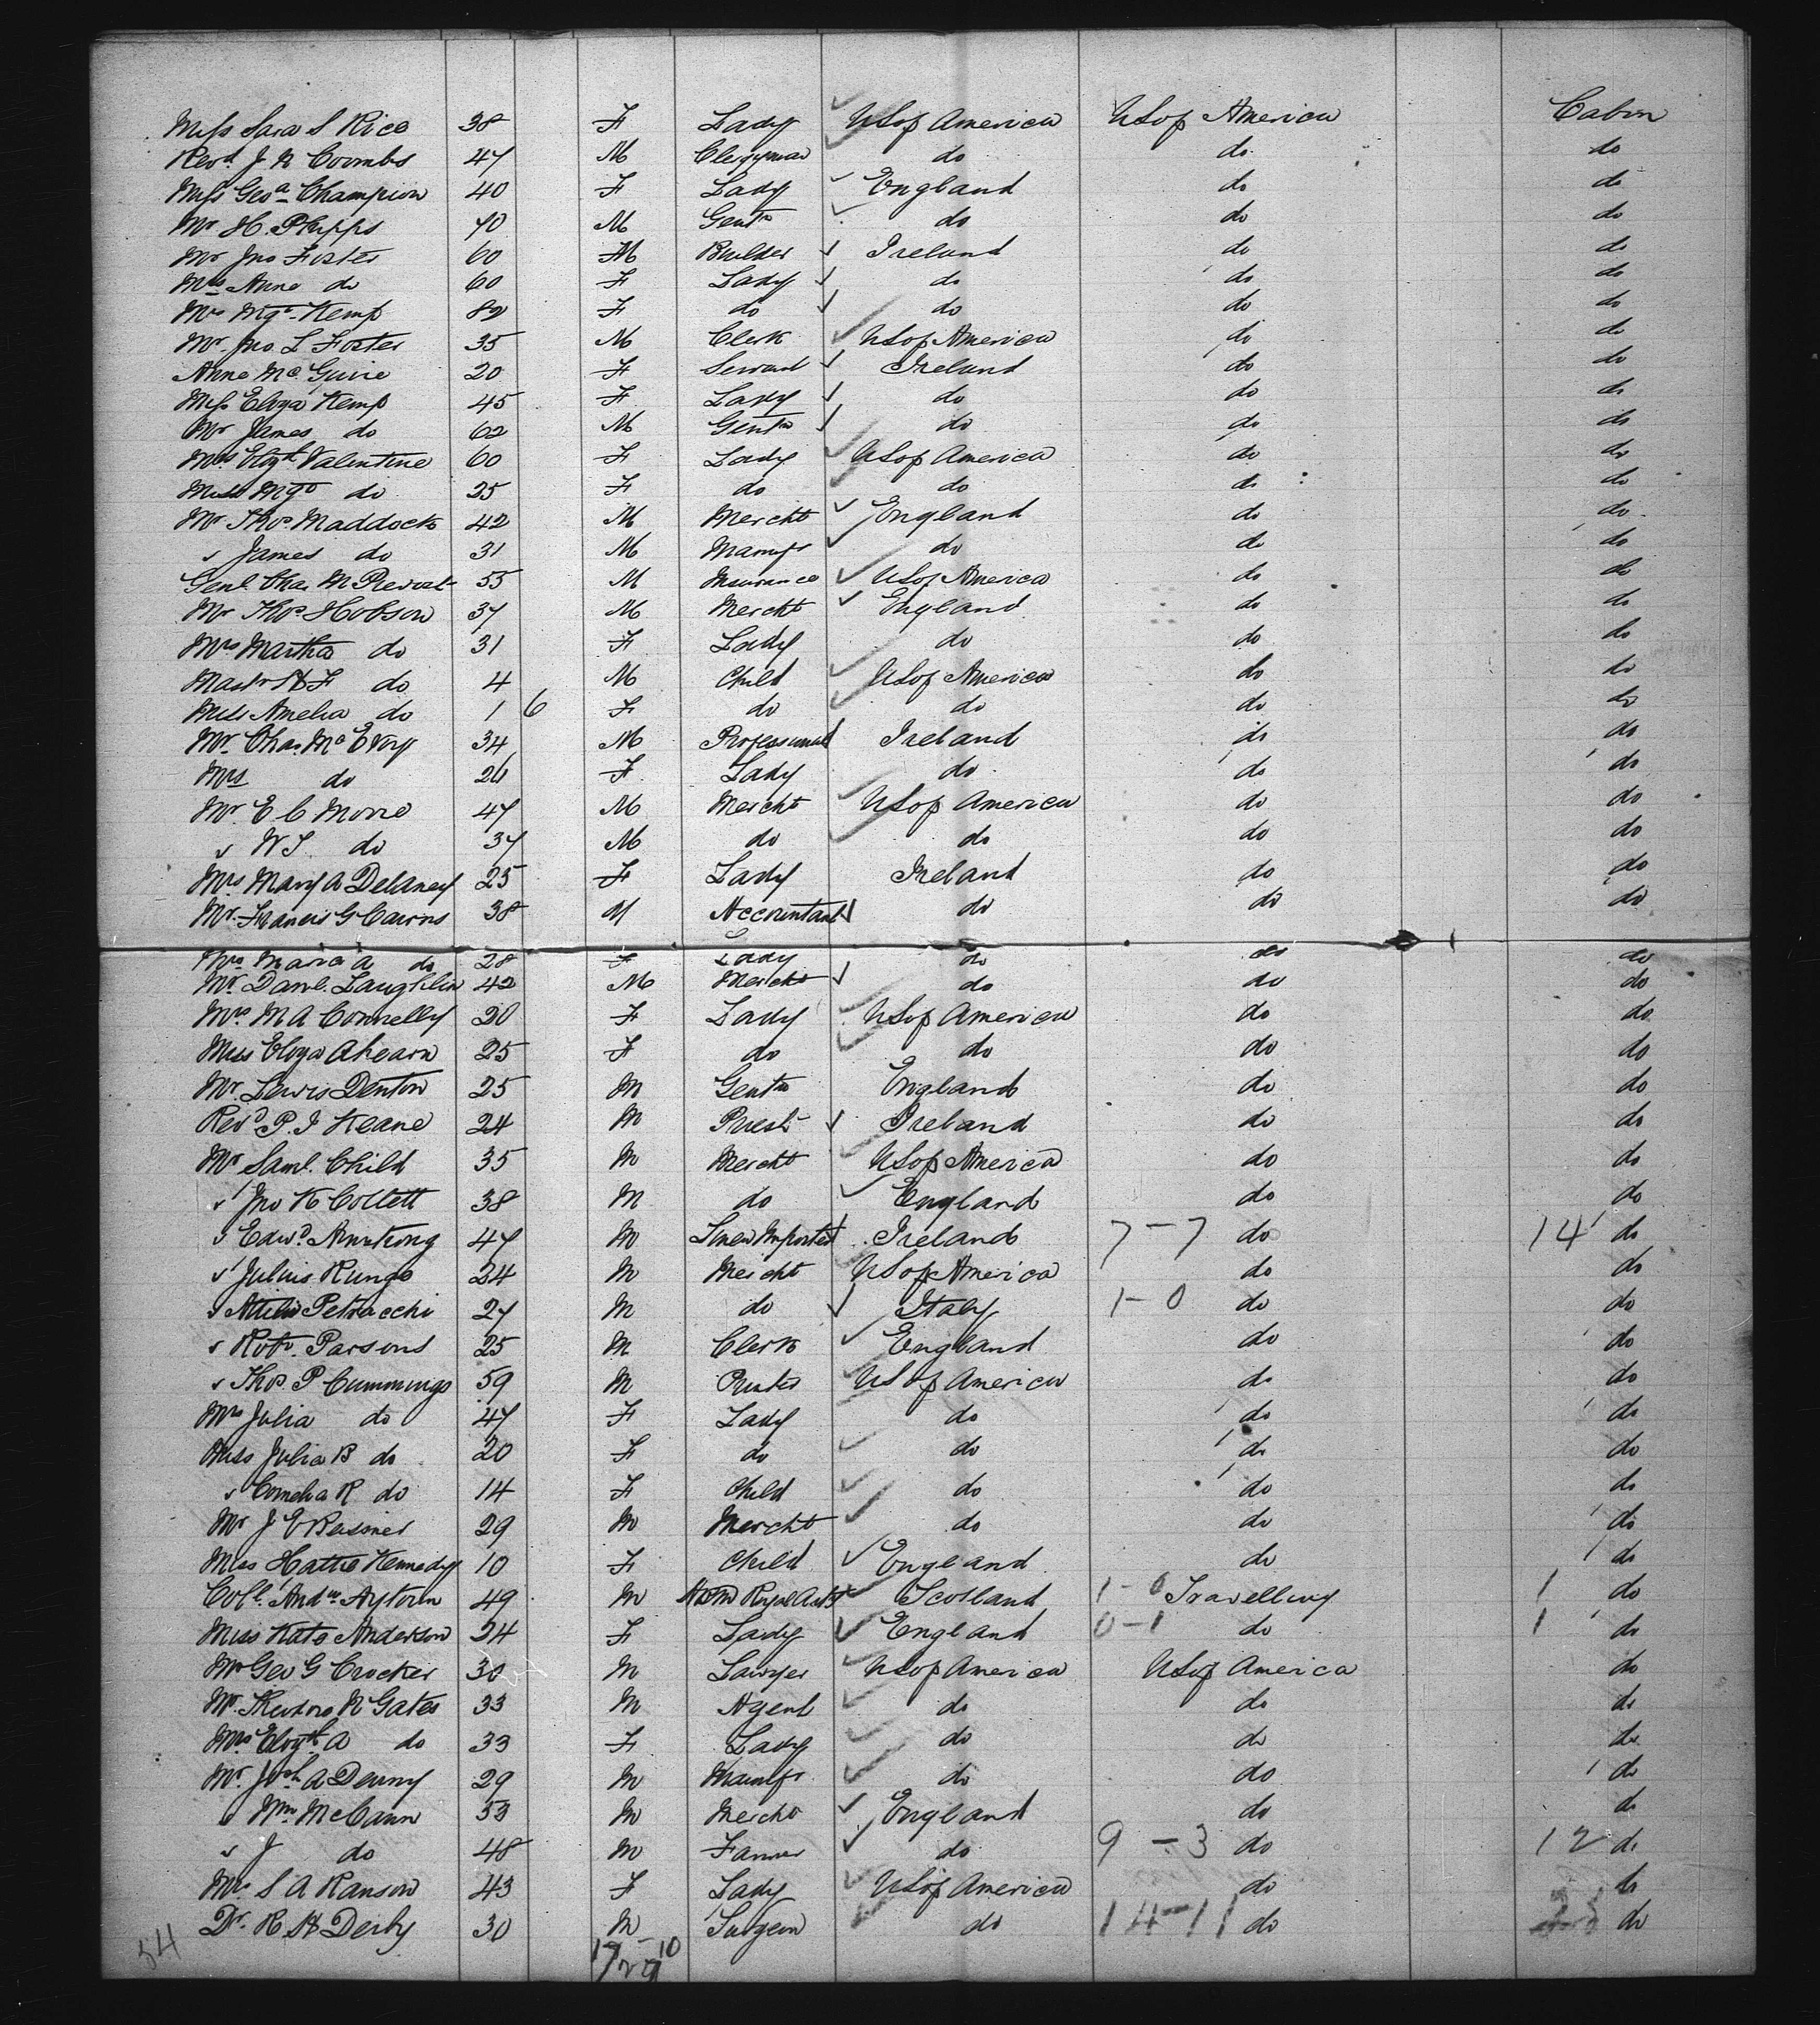 Miss Sara S Rice 38 F Lady USof America USof America Cabin
Revd. J N Coombs 47 M Clergyman do do do
Miss Geoa Champion 40 F Lady England do do
Mr H. Phipps 40 M Gentn do do do
Mr Jno Foster 60 M Builder Ireland do do
Mrs Anne do 60 F Lady do do do
Mrs Mgt Kemp 82 F do do do do
Mr. Jno. L Foster 35 M Clerk USof America do do
Anne McGuire 20 F Servant Ireland do do
Miss Eliza Kemp 45 F Lady do do do
Mr James do 62 M Gentn do do do
Mrs Elizth Valentine 60 F Lady USof America do do
Miss Mgt do 25 F do do do do
Mr Thos. Maddock 42 M Mercht England do do
" James do 31 M Manufr do do do
Genl. Chas M Prevost 55 M Insurance USof America do do
Mr Thos Hobson 37 M Mercht England do do
Mrs Martha do 31 F Lady do do do
Mastr H F do 4 M Child USof America do do
Miss Amelia do 1 6 F do do do do
Mr. Chas. McEvoy 34 M Professional Ireland do do
Mrs do 26 F Lady do do do
Mr. E C Morse 47 M Mercht USof America do do
" W S do 37 M do do do do
Mrs Mary A Delaney 25 F Lady Ireland do do
Mr. Francis G Cairns 38 M Accountant do do do
Mrs Maria A do 28 F Lady do do do
Mr. Danl. Laughlin 42 M Mercht do do do
Mrs. M A Connelly 20 F Lady USof America do do
Miss Eliza Ahearn 25 F do do do do
Mr. Lewis Denton 25 M Gentn England do do
Revd P. J Keane 24 M Priest Ireland do do
Mr Saml. Child 35 M Mercht USof America do do
" Jno K Collett 38 M do England do do
" Edwd. Armstrong 47 M Linen Importer Ireland 7-7 do 14 do
" Julius Runge 24 M Mercht USof America do do
" Attilio Petracchi 27 M do Italy 1-0 do do
" Robt. Parsons 25 M Clerk England do do
" Thos. P Cummings 59 M Printer US of America do do
Mrs Julia do 47 F Lady do do do
Miss Julia B do 20 F do do do do
" Cornelia R do 14 F Child do do do
Mr J E 29 M Mercht do do do
Miss Hattie Kennedy 10 F Child England do do
Coll. Andw Aytoun 49 M Scotland 1-0 Travelling 1 do
Miss Kate Anderson 24 F Lady England 0-1 do 1 do
Mr Geo G Crocker 30 M Lawyer USof America USof America do
Mr. N Gates 33 M Agent do do do
Mrs Elizth A do 33 F Lady do do do
Mr. Josh A Denny 29 M Manufr do do do
" Wm. McCann 53 M Mercht England do do
" J do 48 M Farmer do 9-3 do 12 do
Mrs S A Ranson 43 F Lady USof America do do
Dr. R H Derby 30 M Surgeon do 14-11 do do
54 17 29 10